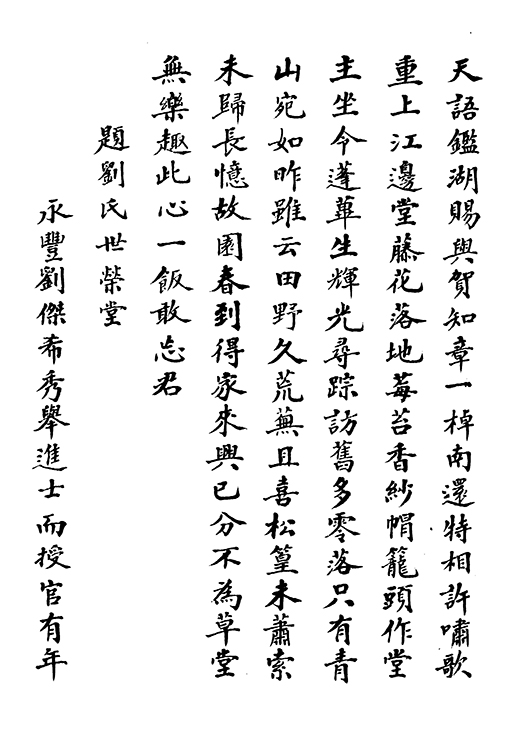 天語鑑湖賜與賀知章一棹南還特相許嘯歌
重上江邊堂藤花落地莓苔香紗帽籠頭作堂
主坐令蓬蓽生輝光尋踪訪舊多零落只有青
山宛如昨雖云田野久荒蕪且喜松篁未蕭索
未歸長憶故園春到得家來興已分不為草堂
無樂趣此心一飯敢忘君
題劉氏世榮堂
永豐劉傑希秀舉進士而授官有年